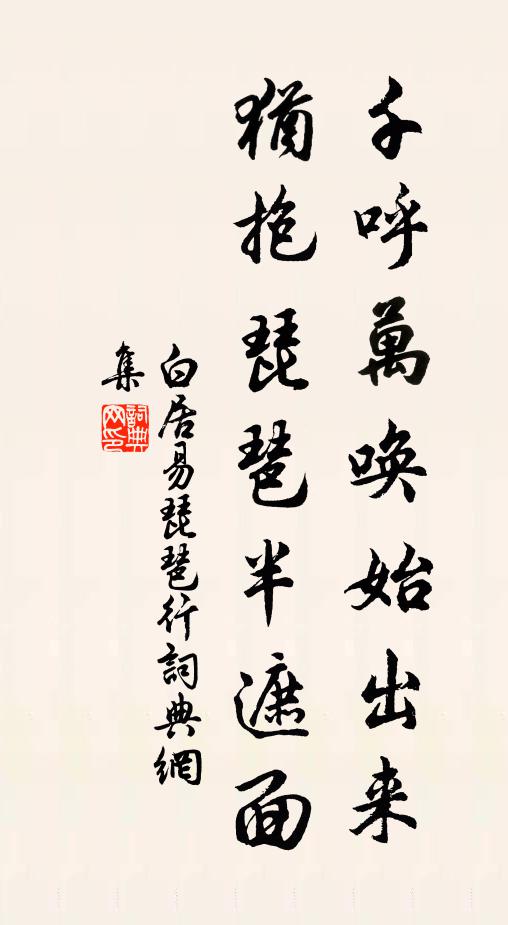 千呼萬唤始出来
猶抱琵琶半遮面
白居易琵琶行詞典網
集
詞典网印